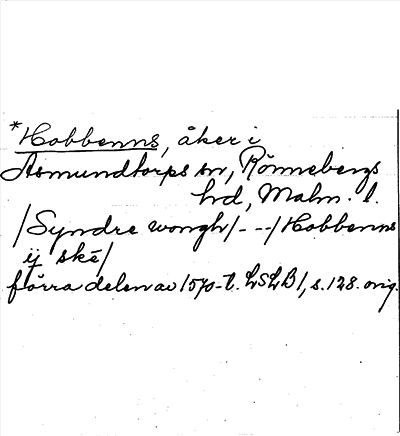 *Hobbenns, åker i
Asmundtorps sn, Rönnebergs
hd, Malm. l.
/Syndre wongh/---/Hobbenns
ij ske/
förra delen av 1570-t. LSLB1, s. 128. orig.